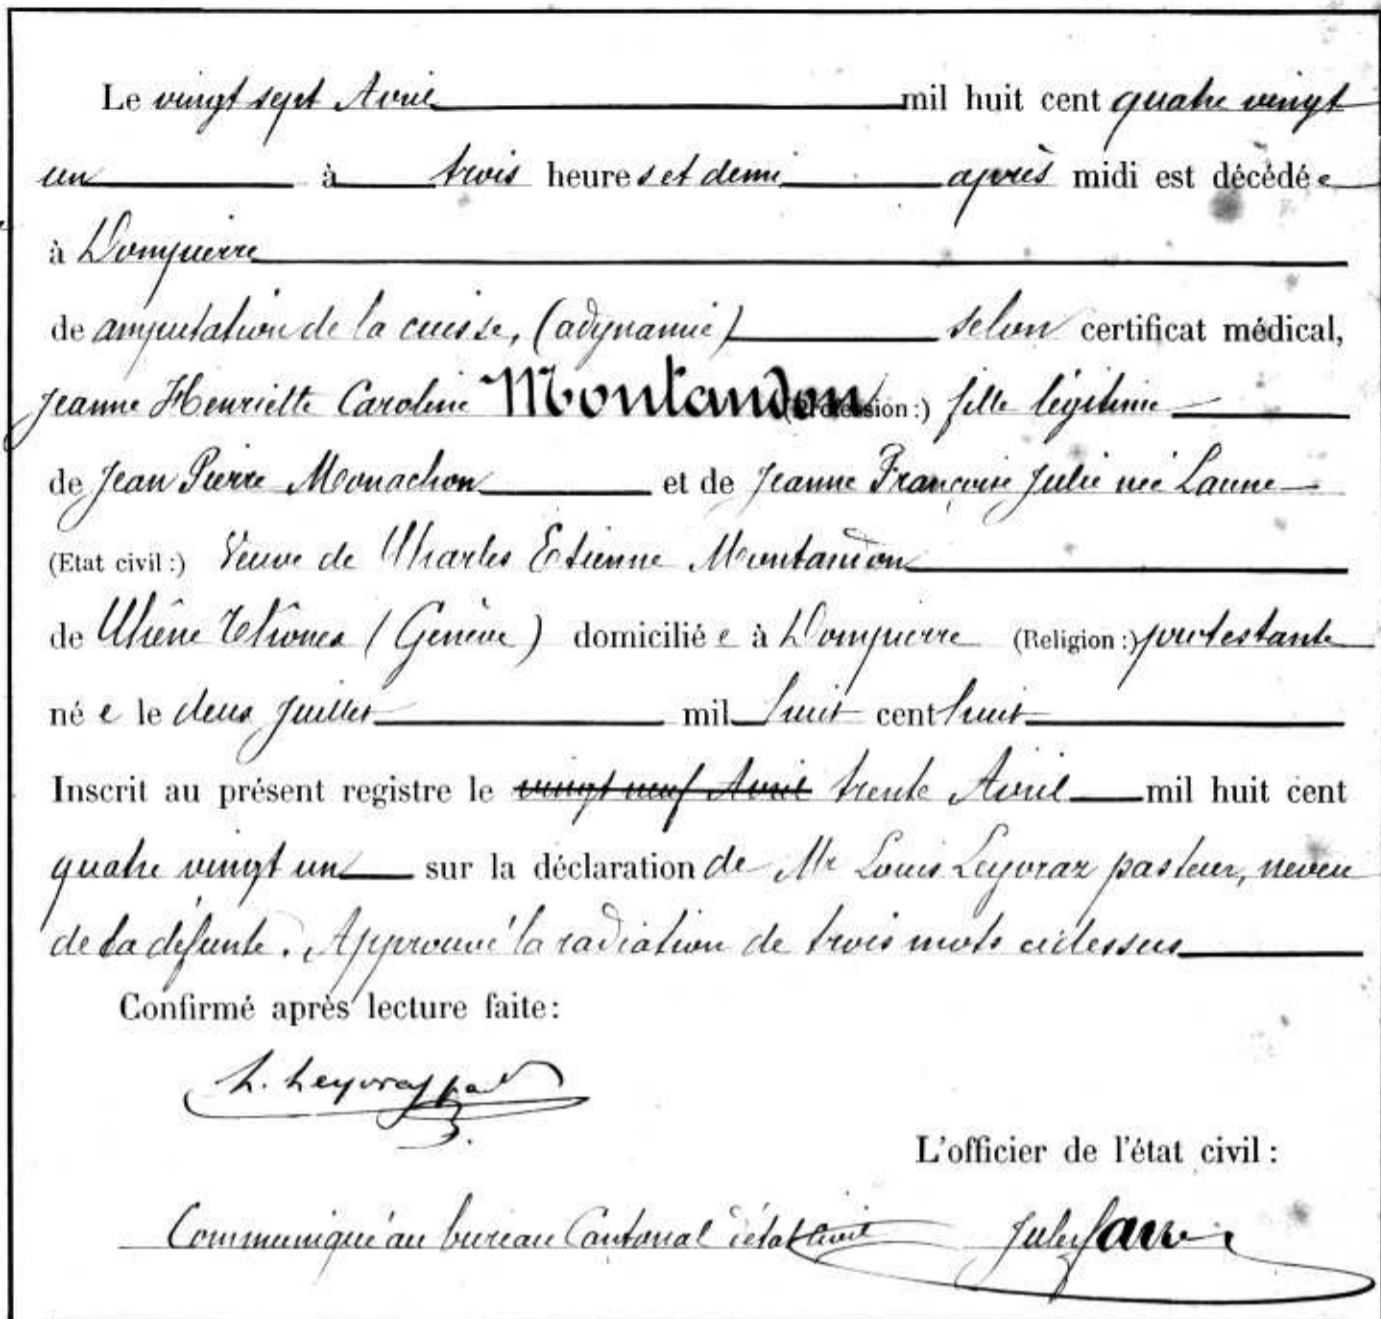 Le vingt sept Avril mil huit cent quatre vingt
un à trois heures et demi après midi est décédée
à Dompierre
de amputation de la cuisse, (adynamie) selon certificat médical,
Jeanne Henriette Caroline Montandon (Profession:) fille légitime
de Jean Pierre Monachon et de Jeanne Françoise Julie née Laune
(Etat civil:) Veuve de Charles Etienne Montandon
de Chêne Thônex (Genève) domiciliée à Dompierre (Religion:) protestante
née le deux Juillet mil huit cent huit
Inscrit au présent registre le vingt neuf Avril trente Avril mil huit cent
quatre vingt un sur la déclaration de Mr Louis Leyvraz pasteur, neveu
de la défunte. Approuvé la radiation de trois mots cidessus
Confirmé après lecture faite:
L. Leyvraz
L'officier de l'état civil:
Communiqué au bureau Cantonal d'état civil Jules